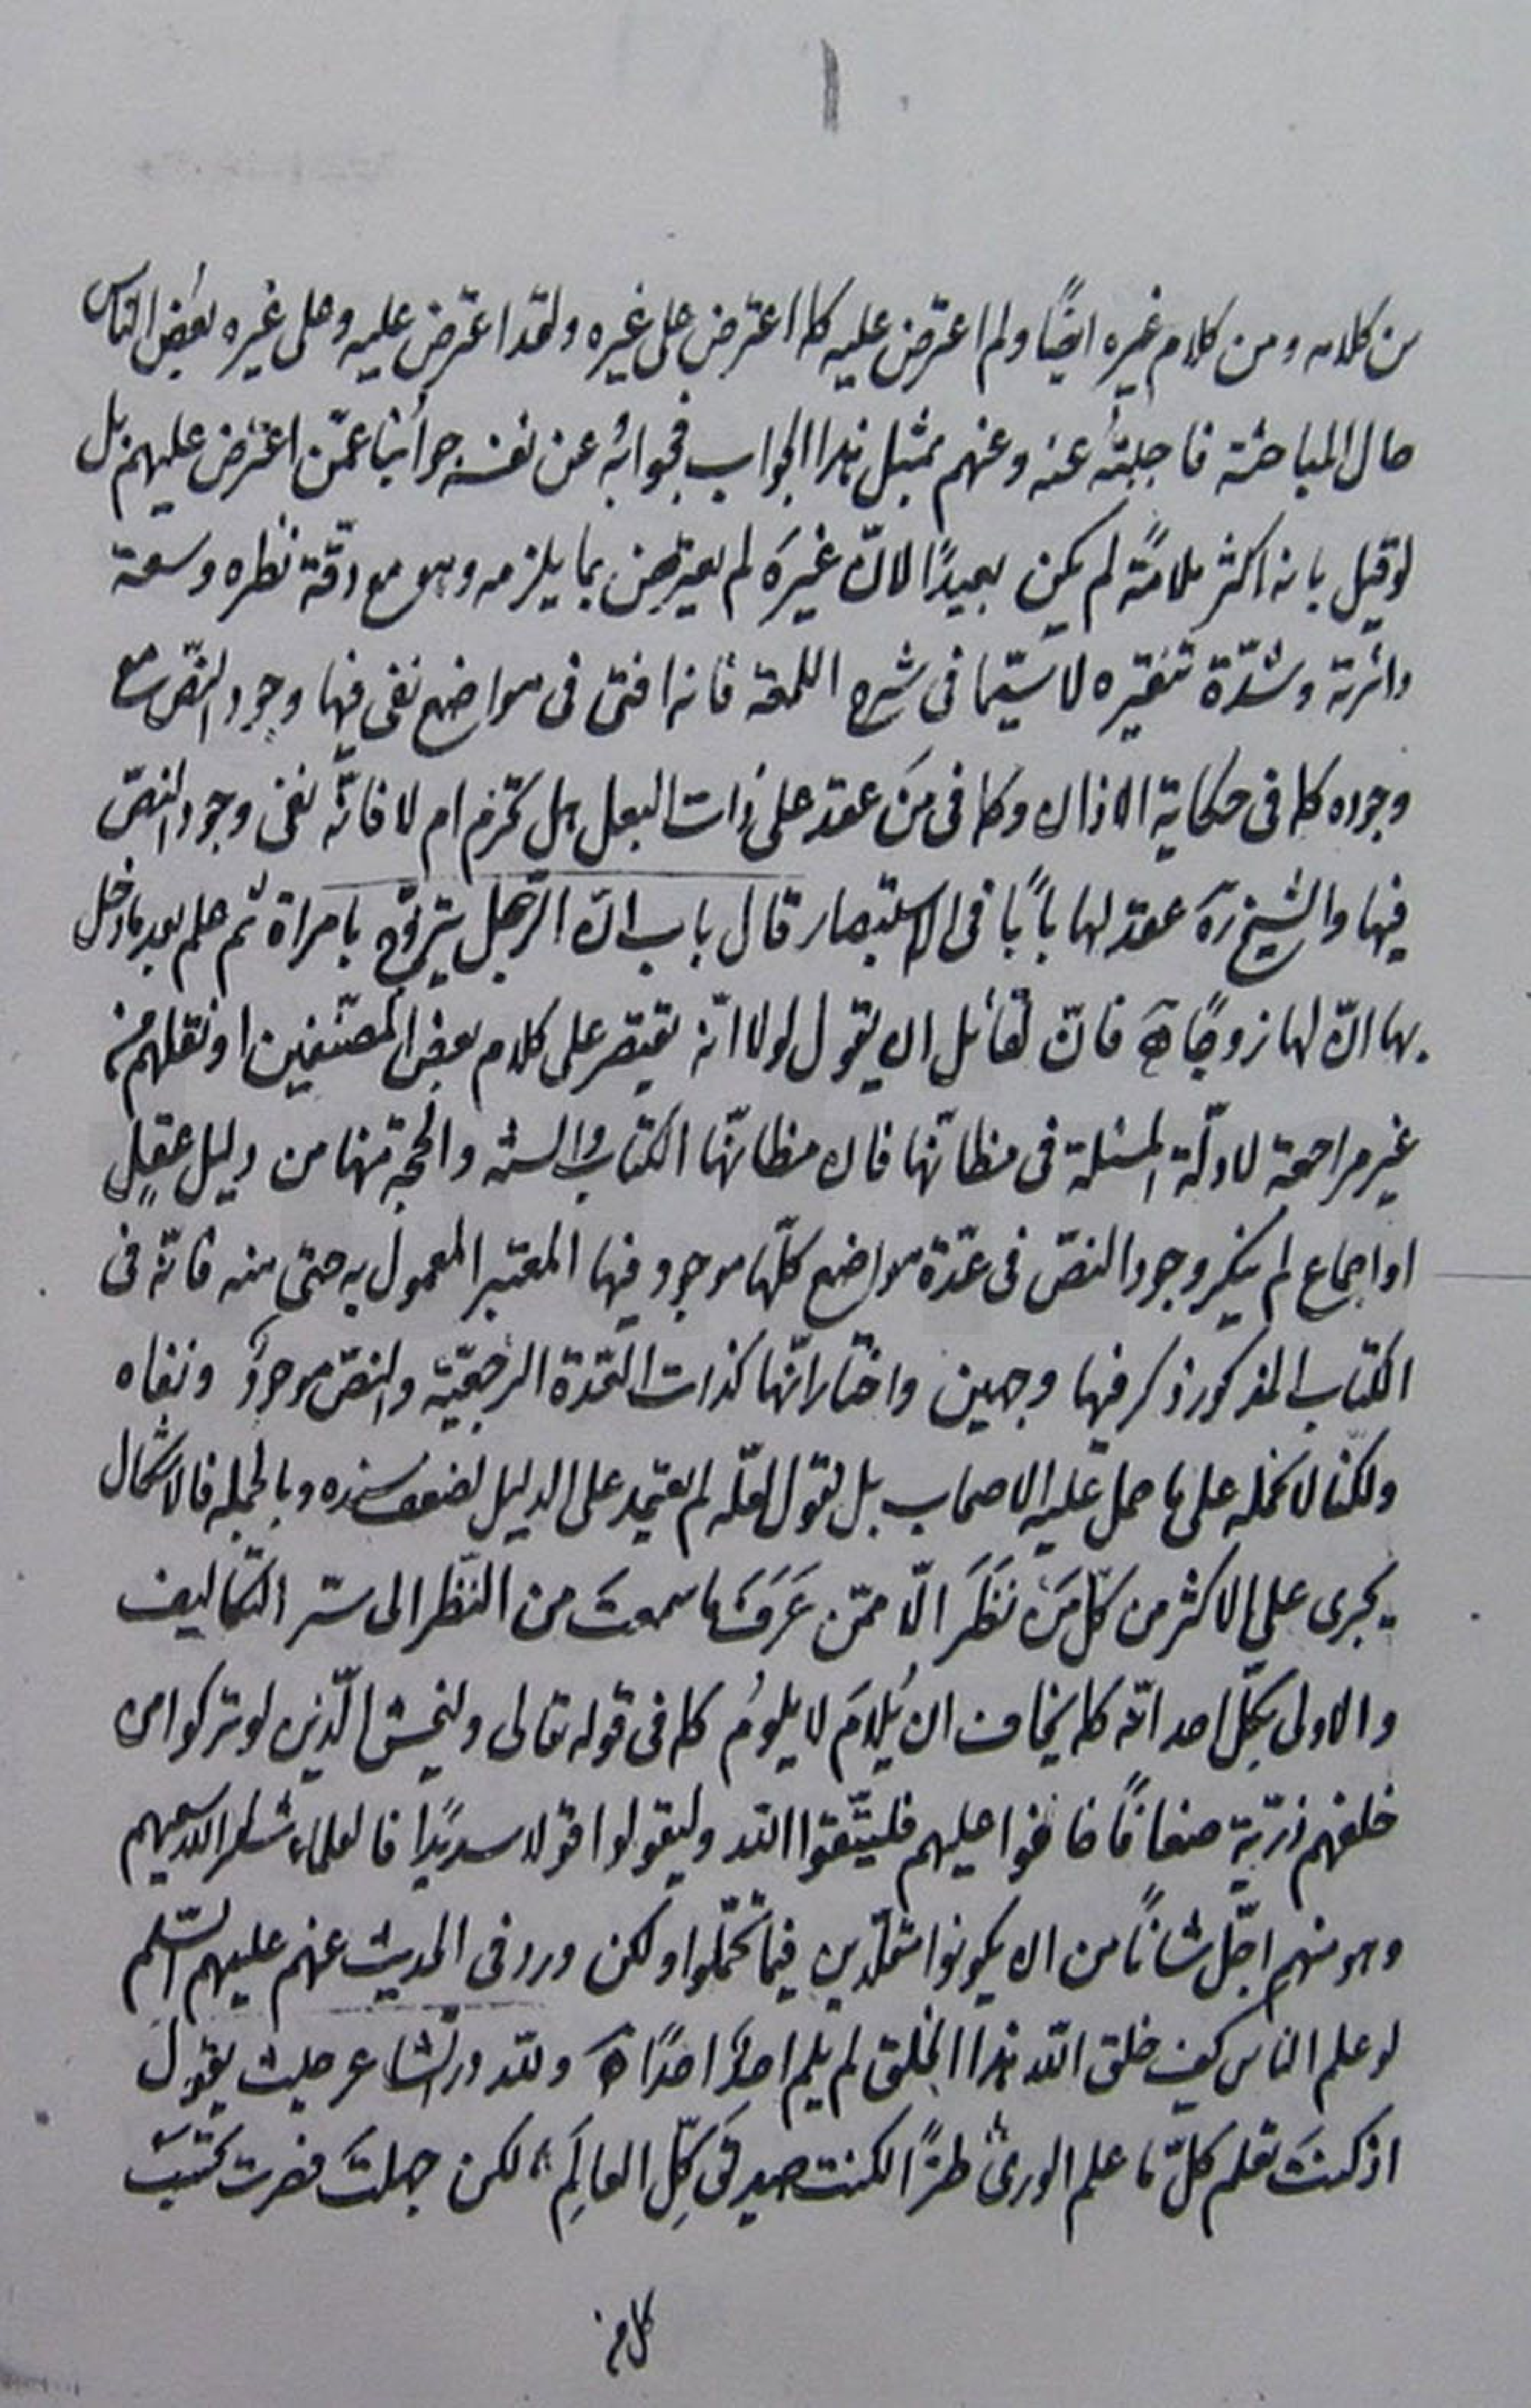 من كلامه ومن كلام غيره ايضًا ولم اعترض عليه كما اعترض على غيره ولقد اعترض عليه وعلى غيره بعض الناس
حال المباحثة فاجبتُه عنه وعنهم بمثل هذا الجواب فجوابُه عن نفسه جوابُنا عمّن اعترض عليهم بل
لو قيل بانه اكثر ملامةً لم يكن بعيدًا لانّ غيرَه لم يعترض بما يلزمه وهو مع دقّة نظره وسعة
دائرته وشدّة تنقيره لا سيّما فى شرح اللمعة فانه افتى فى مواضع نفى فيها وجود النصّ مع
وجوده كما فى حكاية الاذان وكما فى مَن عقد على ذات البعل هل تحرم ام لا فانّه نفى وجود النصّ
فيها والشيخ ره عقد لها بابًا فى الاستبصار قال باب انّ الرّجل يتزوّج بامراة ثم علم بعد ما دخل
بها انّ لها زوجًا فانّ لقائل ان يقول لولا انّه يقتصر على كلام بعض المصنّفين او نقلهم من
غير مراجعة لادلّة المسئلة فى مظانّها فان مظانّها الكتاب والسنّة والحجّة منها من دليل عقلٍ
او اجماع لم ينكر وجود النصّ فى عدّة مواضع كلّها موجود فيها المعتبر المعمول به حتى منه فانّه فى
الكتاب المذكور ذكر فيها وجهين واختار انّها كذات العدّة الرجعيّة والنصّ موجودٌ ونفاه
ولكنّا لا نحمله على ما حمل عليه الاصحاب بل نقول لعلّه لم يعتمد على الدليل لضعف سنده وبالجمله فالاشكال
يجرى على الاكثر من كلّ مَن نَظَرَ الّا ممّن عَرَفَ ما سمعتَ من النّظر الى سرّ التكاليف
والاولى بكلّ احد انّه كما يخاف ان يُلامَ لا يلومُ كما فى قوله تعالى وليخش الّذين لو تركوا من
خلفهم ذرّية ضعافًا خافوا عليهم فليتّقوا الله وليقولوا قولا سديدًا فالعلماء شكر الله سعيهم
وهو منهم اجلّ شانًا من ان يكونوا مقلّدين فيما تحمّلوا ولكن ورد فى الحديث عنهم عليهم السّلم
لو علم الناس كيف خلق الله هذا الخلق لم يلم احدٌ احدًا ولله درّ الشاعر حيث يقول
اذ كنتَ تعلم كلّ ما علم الورى طرًّا لكنت صديق كلّ العالَمِ لكن جهلتَ فصرت تحسَب
كل من